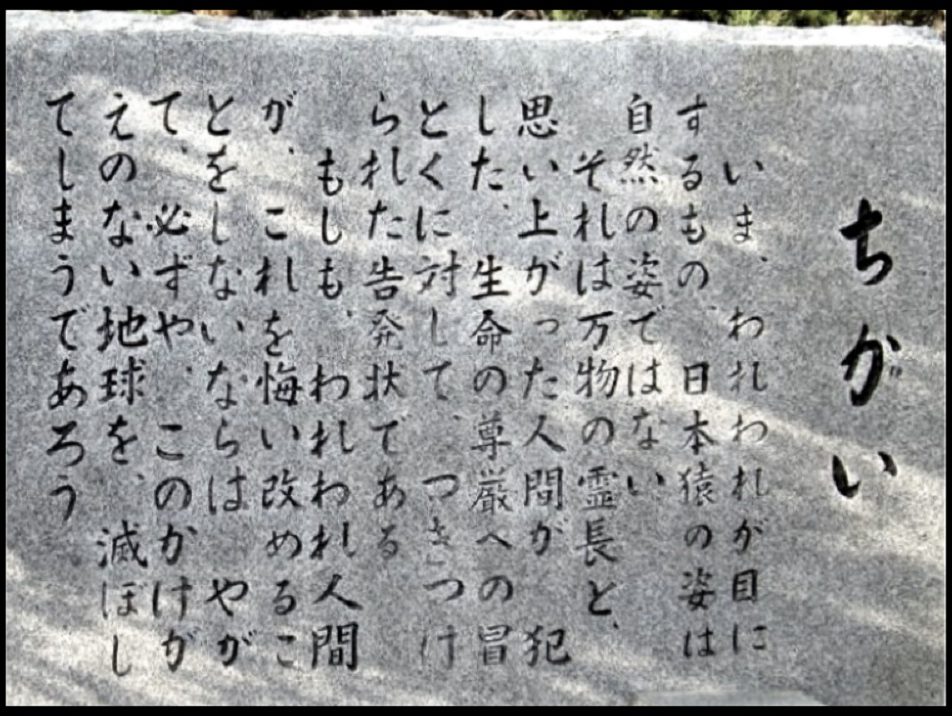 ちかい
いま、われわれが目に
するもの、日本猿の姿は
自然の姿ではない
それは万物の霊長と、
思い上がった人間が、犯
した、生命の尊厳への冒
とくに対して、つきつけ
られた告発状である
もしも、われわれ人間
が、これを悔い改めるこ
とをしないならば、やが
て、必ずや、このかけが
えのない地球を、滅ぼし
てしまうであろう